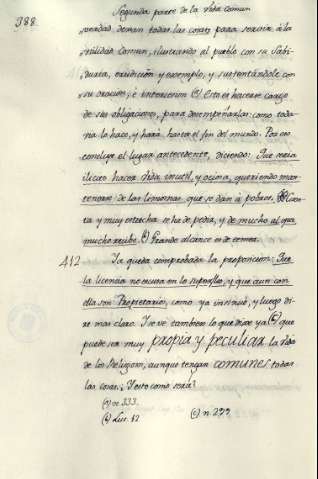 388.
Segunda parte de la Vida comun
verdad, deman todas las cosas para servir à la
utilidad comun, ilustrando al pueblo con su Sabi-
duria, erudicion y exemplo, y sustentándole con
su oracion, è intercesion. Esta es hacerse cargo
de sus obligaciones, para desempeñarlas: como toda-
via lo hace, y hará, hasta el fin del mundo. Por eso
concluye el lugar antecedente, diciendo: Que seria
ilicito hacer vida inutil, y ociosa, queriendo man-
tenerse de las limosnas, que se dan à pobres.
ta y muy estrecha se ha de pedir, y de mucho al que
mucho recibe. Grande alcance es de temer.
412 Ya queda comprobada la proposicion: Que
la licencia no escusa en lo superfluo, y que aun con
ella son Propietarios, como ya insinué, y luego di-
re mas claro. Y se ve tambien lo que dixe ya (c) que
puede ser muy propia y peculiar la vida
de los Religiosos, aunque tengan comunes todas
las cosas. ¿Y esto como será?
(a) n. 333.
(b) Luc. 12
(c) n. 299